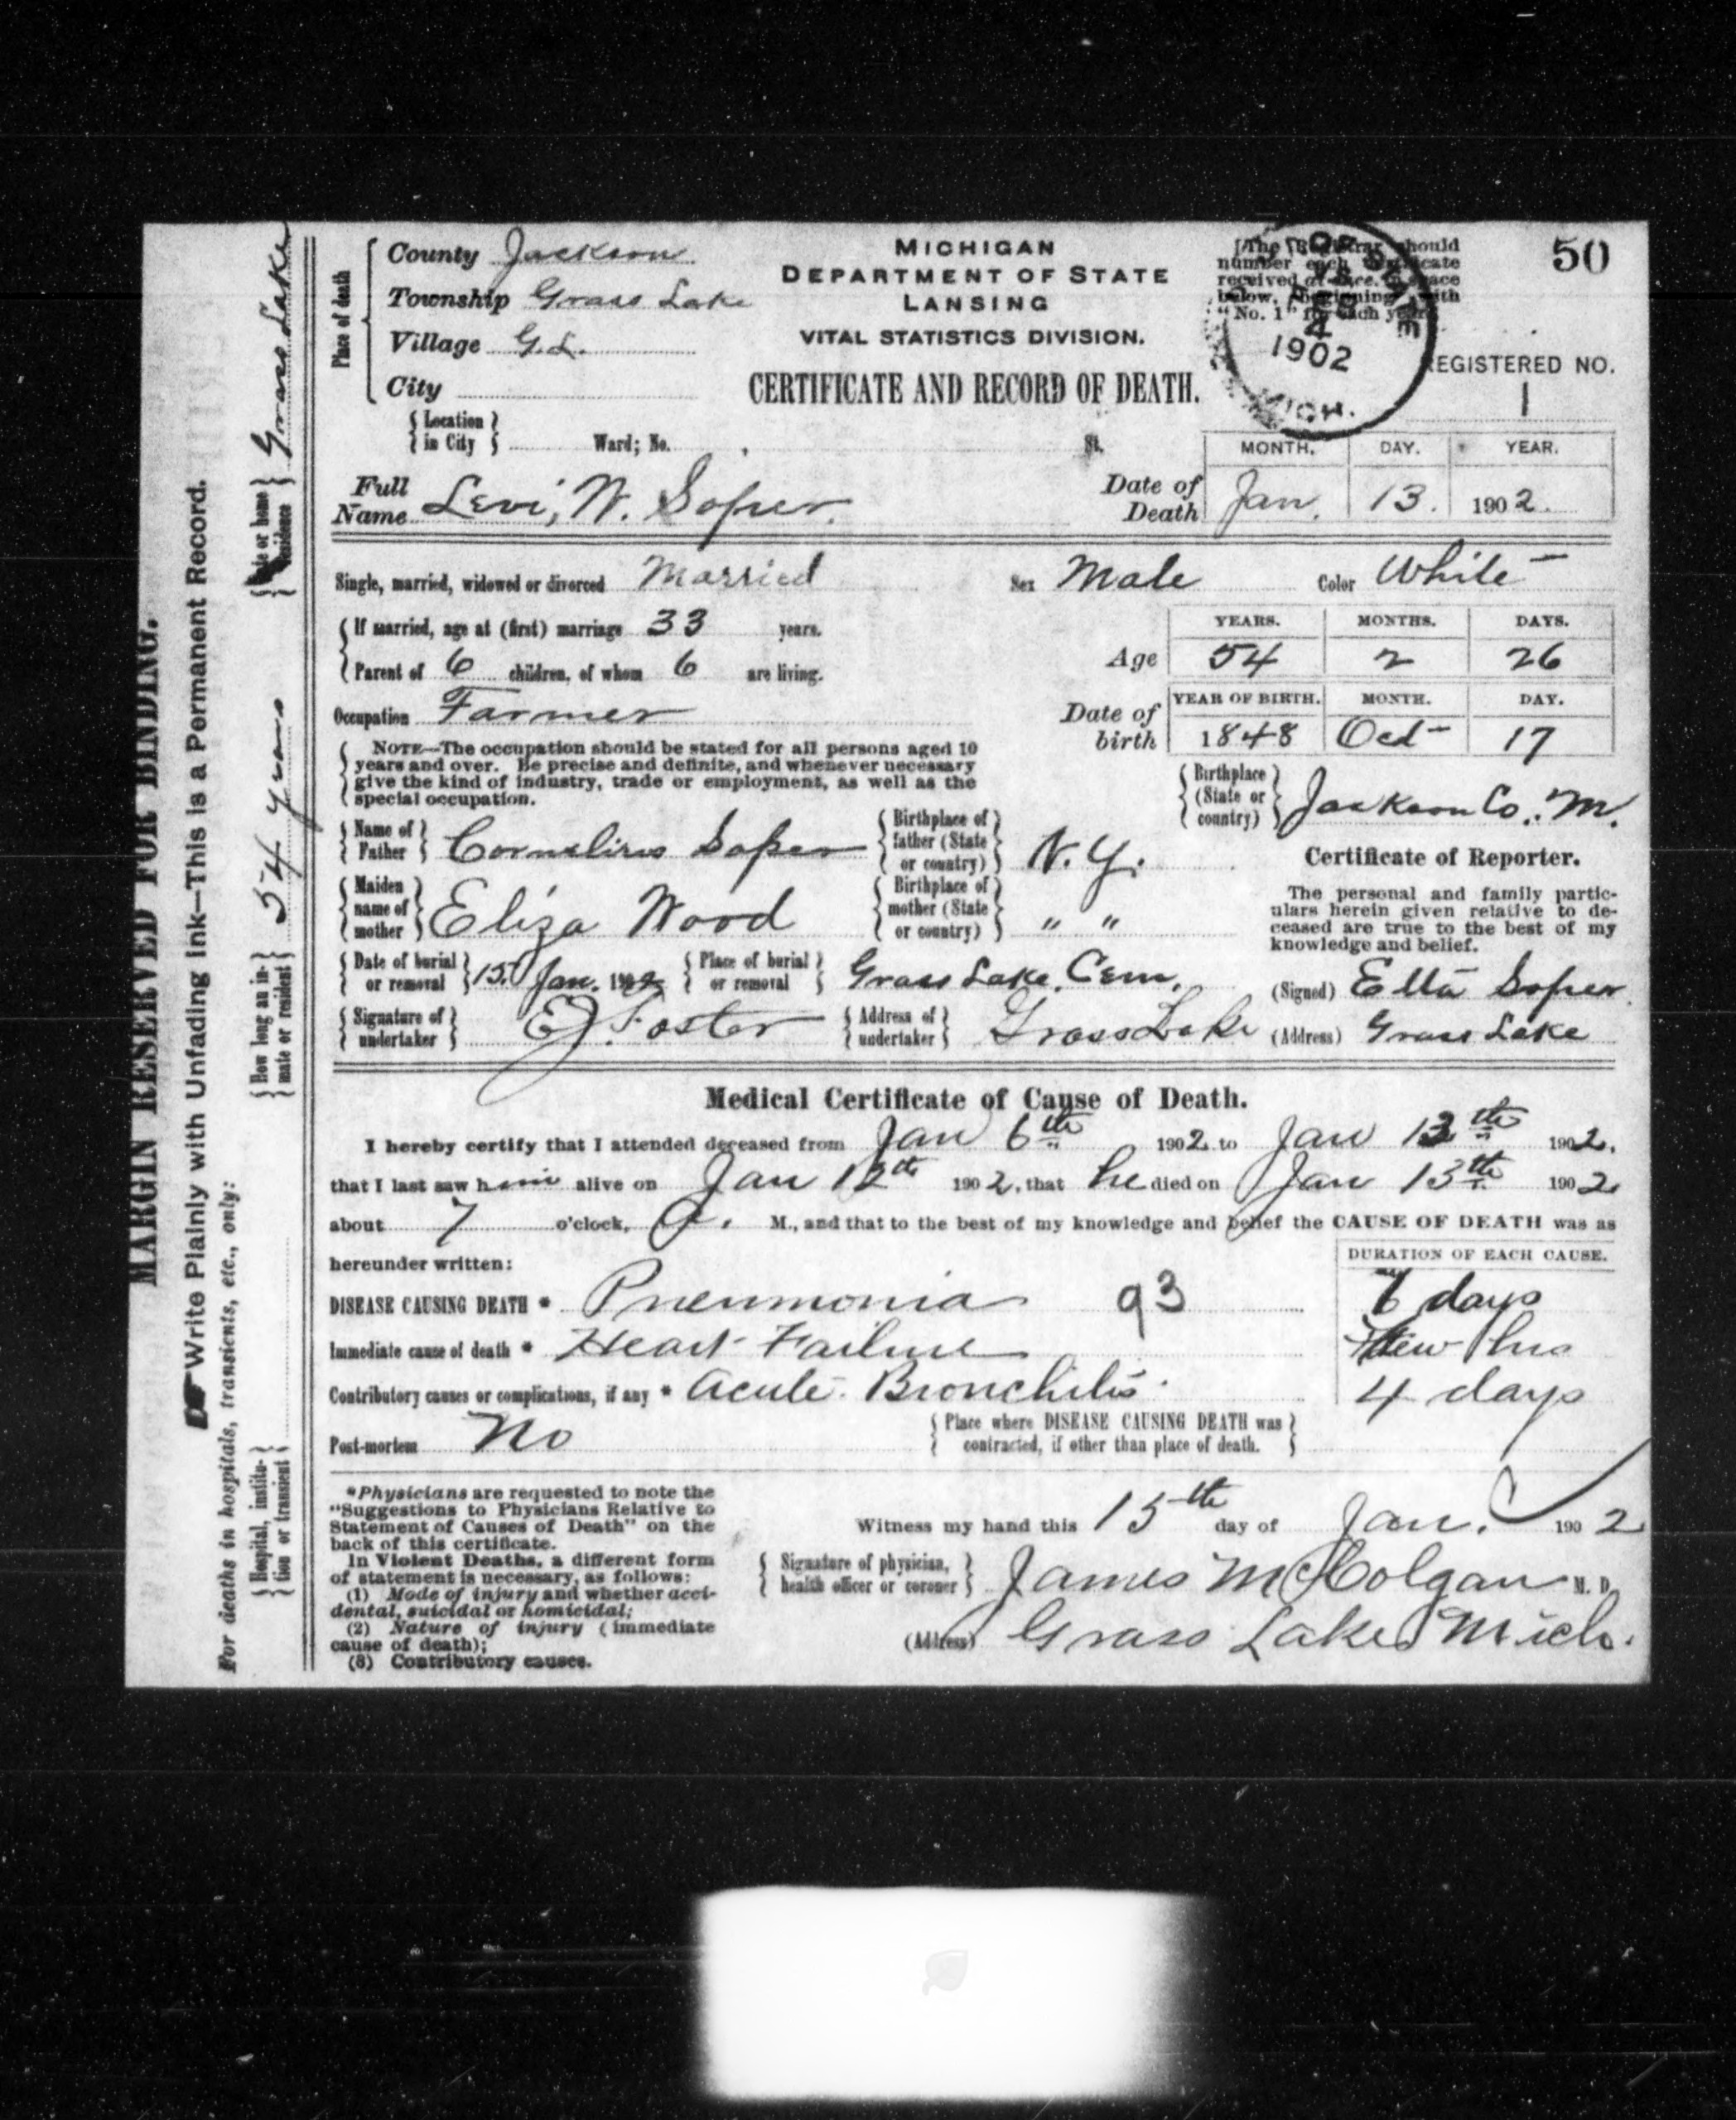 County Jackson
Township Grass Lake
Village G.L.
City
Place of death
Location in City Ward; No. St.
MICHIGAN
DEPARTMENT OF STATE
LANSING
VITAL STATISTICS DIVISION.
CERTIFICATE AND RECORD OF DEATH.
[The Registrar should
number each certificate
received at once in space
below, beginning with
"No. 1" for each year.
4
1902
MICH.
50
REGISTERED NO.
1
Full Name Levi, W. Soper.
Date of Death
MONTH. DAY. YEAR.
Jan. 13. 1902.
Single, married, widowed or divorced Married Sex Male Color White
If married, age at (first) marriage 33 years.
Parent of 6 children, of whom 6 are living.
YEARS. MONTHS. DAYS.
Age 54 2 26
Occupation Farmer
YEAR OF BIRTH. MONTH. DAY.
Date of birth 1848 Oct 17
NOTE—The occupation should be stated for all persons aged 10
years and over. Be precise and definite, and whenever necessary
give the kind of industry, trade or employment, as well as the
special occupation.
Birthplace (State or country) Jackson Co., M.
Name of Father Cornelius Soper Birthplace of father (State or country) N.Y.
Maiden name of mother Eliza Wood Birthplace of mother (State or country) " "
Date of burial or removal 15. Jan. 1902 Place of burial or removal Grass Lake Cem.
Signature of undertaker E J. Foster Address of undertaker Grass Lake
Certificate of Reporter.
The personal and family partic-
ulars herein given relative to de-
ceased are true to the best of my
knowledge and belief.
(Signed) Etta Soper
(Address) Grass Lake
Medical Certificate of Cause of Death.
I hereby certify that I attended deceased from Jan 6th 1902 to Jan 13th 1902.
that I last saw him alive on Jan 12th 1902, that he died on Jan 13th 1902
about 7 o'clock, a. M., and that to the best of my knowledge and belief the CAUSE OF DEATH was as
hereunder written:
DURATION OF EACH CAUSE.
DISEASE CAUSING DEATH * Pneumonia 93 days
Immediate cause of death * Heart Failure few hrs
Contributory causes or complications, if any * Acute Bronchitis 4 days
Post-mortem No
Place where DISEASE CAUSING DEATH was
contracted, if other than place of death.
*Physicians are requested to note the
"Suggestions to Physicians Relative to
Statement of Causes of Death" on the
back of this certificate.
In Violent Deaths, a different form
of statement is necessary, as follows:
(1) Mode of injury and whether acci-
dental, suicidal or homicidal;
(2) Nature of injury (immediate
cause of death);
(3) Contributory causes.
Witness my hand this 15th day of Jan. 1902
Signature of physician, health officer or coroner James McColgan M. D.
(Address) Grass Lake Mich.
MARGIN RESERVED FOR BINDING.
Write Plainly with Unfading Ink—This is a Permanent Record.
For deaths in hospitals, transients, etc., only:
Hospital, institu-
tion or transient
How long an in-
mate or resident 54 years
or home
residence Grass Lake